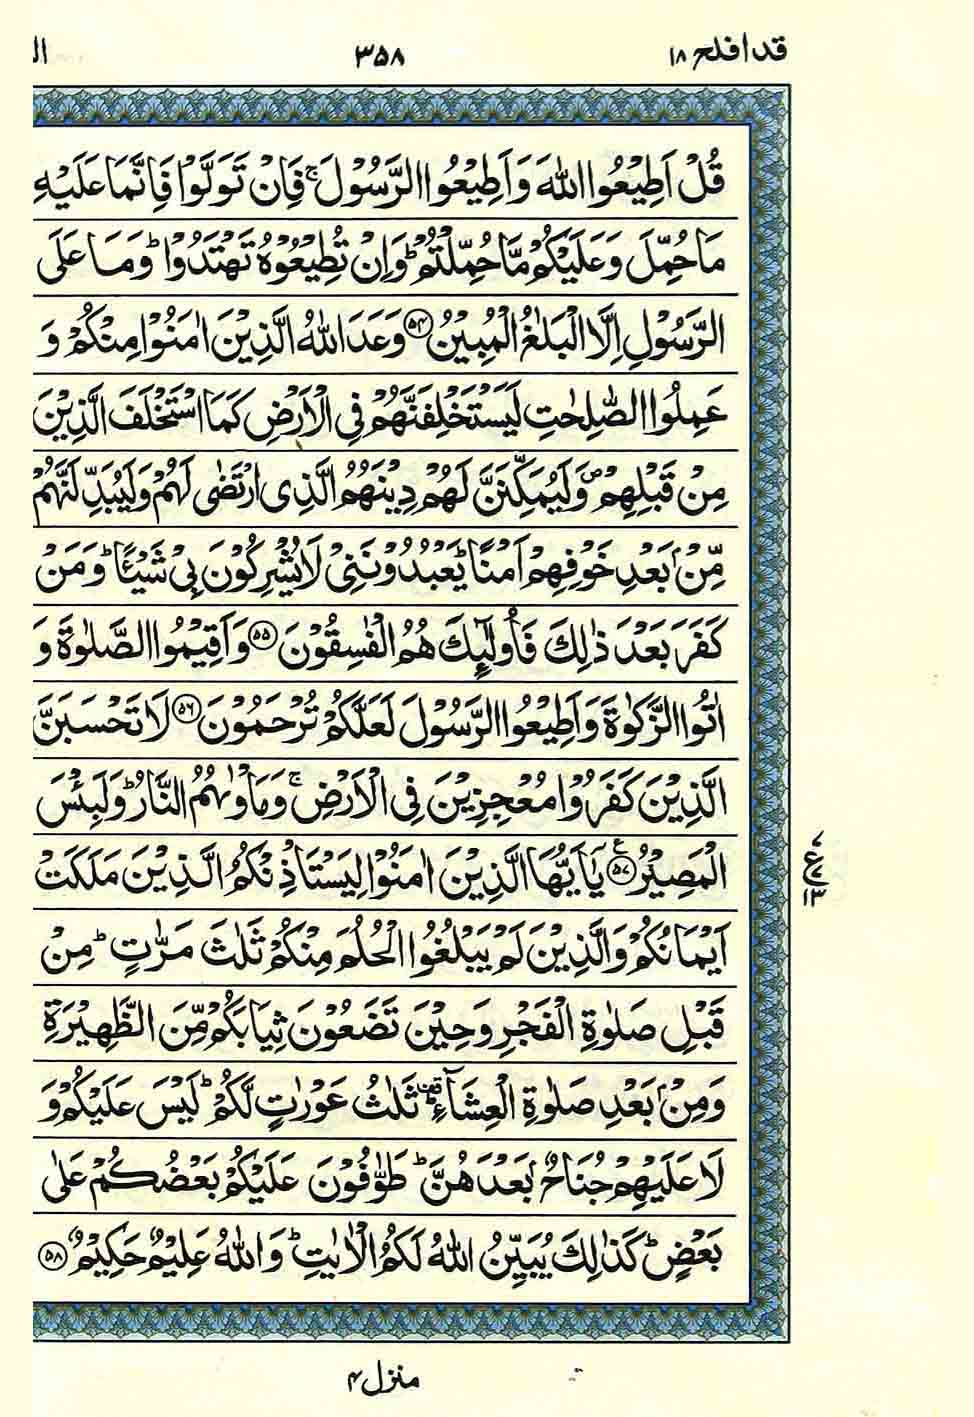 قد افلح ۱۸
۳۵۸
قُلْ اَطِيْعُوا اللّٰهَ وَ اَطِيْعُوا الرَّسُوْلَ ۚ فَاِنْ تَوَلَّوْا فَاِنَّمَا عَلَيْهِ
مَا حُمِّلَ وَ عَلَيْكُمْ مَّا حُمِّلْتُمْ ؕ وَ اِنْ تُطِيْعُوْهُ تَهْتَدُوْا ؕ وَ مَا عَلَى
الرَّسُوْلِ اِلَّا الْبَلٰغُ الْمُبِيْنُ ﴿۵۴﴾ وَعَدَ اللّٰهُ الَّذِيْنَ اٰمَنُوْا مِنْكُمْ وَ
عَمِلُوا الصّٰلِحٰتِ لَيَسْتَخْلِفَنَّهُمْ فِى الْاَرْضِ كَمَا اسْتَخْلَفَ الَّذِيْنَ
مِنْ قَبْلِهِمْ ۪ وَ لَيُمَكِّنَنَّ لَهُمْ دِيْنَهُمُ الَّذِى ارْتَضٰى لَهُمْ وَ لَيُبَدِّلَنَّهُمْ
مِّنْۢ بَعْدِ خَوْفِهِمْ اَمْنًا ؕ يَعْبُدُوْنَنِىْ لَا يُشْرِكُوْنَ بِىْ شَيْـًٔا ؕ وَ مَنْ
كَفَرَ بَعْدَ ذٰلِكَ فَاُولٰٓئِكَ هُمُ الْفٰسِقُوْنَ ﴿۵۵﴾ وَ اَقِيْمُوا الصَّلٰوةَ وَ
اٰتُوا الزَّكٰوةَ وَ اَطِيْعُوا الرَّسُوْلَ لَعَلَّكُمْ تُرْحَمُوْنَ ﴿۵۶﴾ لَا تَحْسَبَنَّ
الَّذِيْنَ كَفَرُوْا مُعْجِزِيْنَ فِى الْاَرْضِ ۚ وَ مَاْوٰىهُمُ النَّارُ ؕ وَ لَبِئْسَ
الْمَصِيْرُ ﴿۵۷﴾ يٰۤاَيُّهَا الَّذِيْنَ اٰمَنُوْا لِيَسْتَاْذِنْكُمُ الَّذِيْنَ مَلَكَتْ
اَيْمَانُكُمْ وَ الَّذِيْنَ لَمْ يَبْلُغُوا الْحُلُمَ مِنْكُمْ ثَلٰثَ مَرّٰتٍ ؕ مِنْ
قَبْلِ صَلٰوةِ الْفَجْرِ وَ حِيْنَ تَضَعُوْنَ ثِيَابَكُمْ مِّنَ الظَّهِيْرَةِ
وَ مِنْۢ بَعْدِ صَلٰوةِ الْعِشَآءِ ؕ ثَلٰثُ عَوْرٰتٍ لَّكُمْ ؕ لَيْسَ عَلَيْكُمْ وَ
لَا عَلَيْهِمْ جُنَاحٌۢ بَعْدَهُنَّ ؕ طَوّٰفُوْنَ عَلَيْكُمْ بَعْضُكُمْ عَلٰى
بَعْضٍ ؕ كَذٰلِكَ يُبَيِّنُ اللّٰهُ لَكُمُ الْاٰيٰتِ ؕ وَ اللّٰهُ عَلِيْمٌ حَكِيْمٌ ﴿۵۸﴾
ع
۷
۱۳
منزل ۴